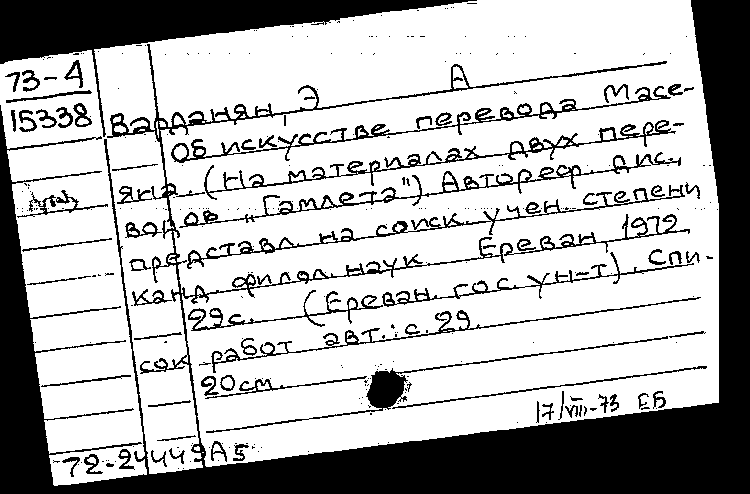 73-4
15338
Варданян, Э А
Об искусстве перевода Масе-
яна. (На материалах двух пере-
водов "Гамлета") Автореф. дис.,
представл. на соиск. учен. степени
канд. филол. наук. Ереван, 1972.
29с. (Ереван. гос. ун-т). Спи-
сок работ авт.: с. 29.
20см.
17/VIII-73 ЕБ
72-24449А5